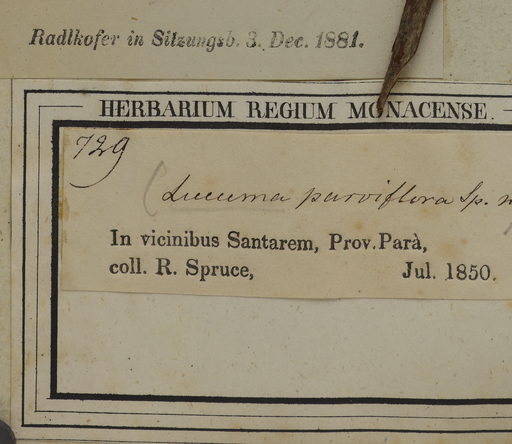 Radlkofer in Sitzungsb. 3. Dec. 1881.
HERBARIUM REGIUM MONACENSE.
729
(Lucuma parviflora Sp. n
In vicinibus Santarem, Prov. Parà,
coll. R. Spruce, Jul. 1850.